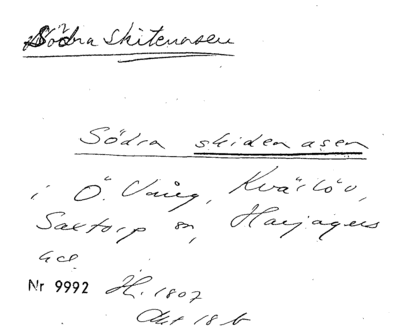 Södra Skitenasen
Södra skidenasen
i Ö. Vång, Kvärlöv,
Saxtorp sn, Harjagers
hd
Nr 9992 H. 1807
Akt 18 b